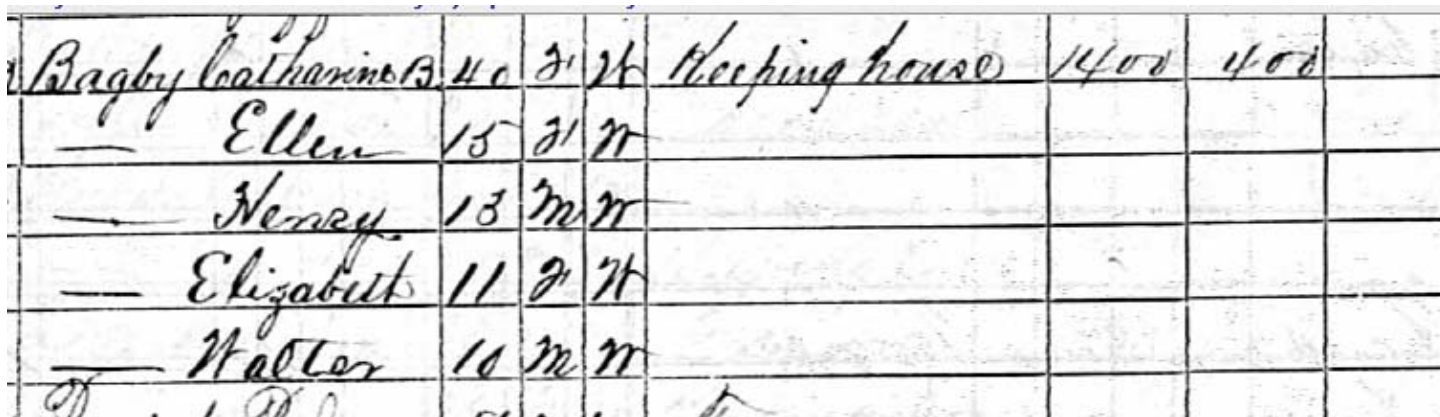 Bagby Catharine B. 40 F W Keeping house 1400 400
— Ellen 15 F W
— Henry 13 M W
— Elizabeth 11 F W
— Walter 10 M W